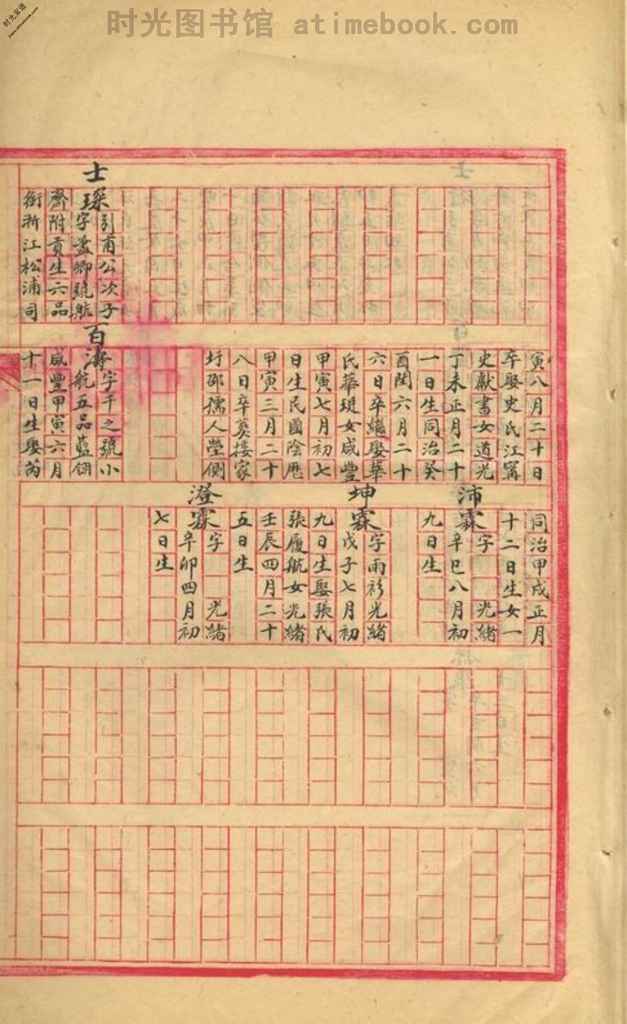 时光图书馆 atimebook.com
士琛
引甫公次子
字藎卿號舫
齋附貢生六品
銜浙江松浦司
寅八月二十日
卒娶史氏江甯
史獻書女道光
丁未正月二十
一日生同治癸
酉閏六月二十
六日卒繼娶華
氏華珽女咸豐
甲寅七月初七
日生民國陰厯
甲寅三月二十
八日卒葬接家
圩邵孺人塋側
百濤
字千之號小
航五品藍翎
咸豐甲寅六月
十一日生娶芮
同治甲戌正月
十二日生女一
沛霖
字 光緒
辛巳八月初
九日生
坤霖
字雨衫光緒
戊子七月初
九日生娶張氏
張履航女光緒
壬辰四月二十
五日生
澄霖
字 光緒
辛卯四月初
七日生